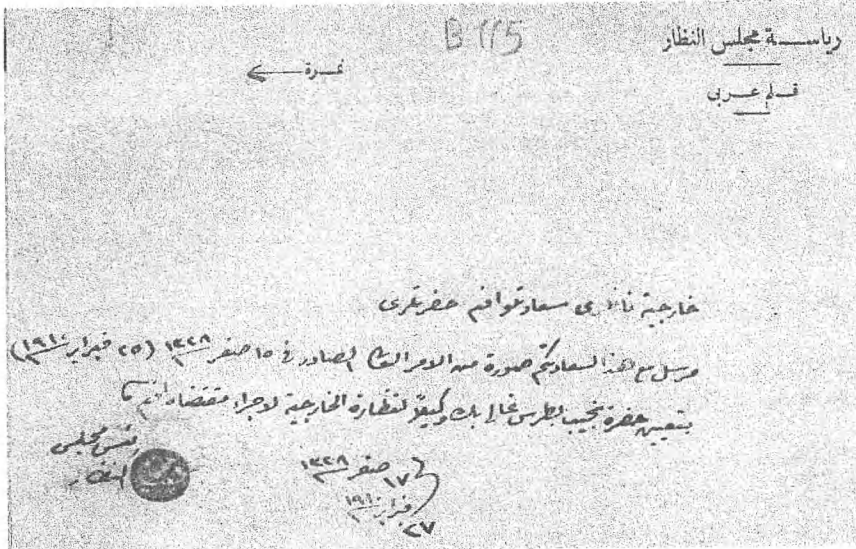 B 115
رياسة مجلس النظار
نمرة
قلم عربى
خارجية ناظرى سعادتلو افندم حضرتلرى
مرسل مع هذا لسعادتكم صورة من الامر العالى الصادر فى ١٥ صفر ١٣٢٨ (٢٥ فبراير ١٩١٠)
بتعيين حضرة نجيب بطرس غالى بك وكيلاً لنظارة الخارجية لاجراء مقتضاه افندم
رئيس مجلس
النظار
فى ١٧ صفر ١٣٢٨
٢٧ فبراير ١٩١٠